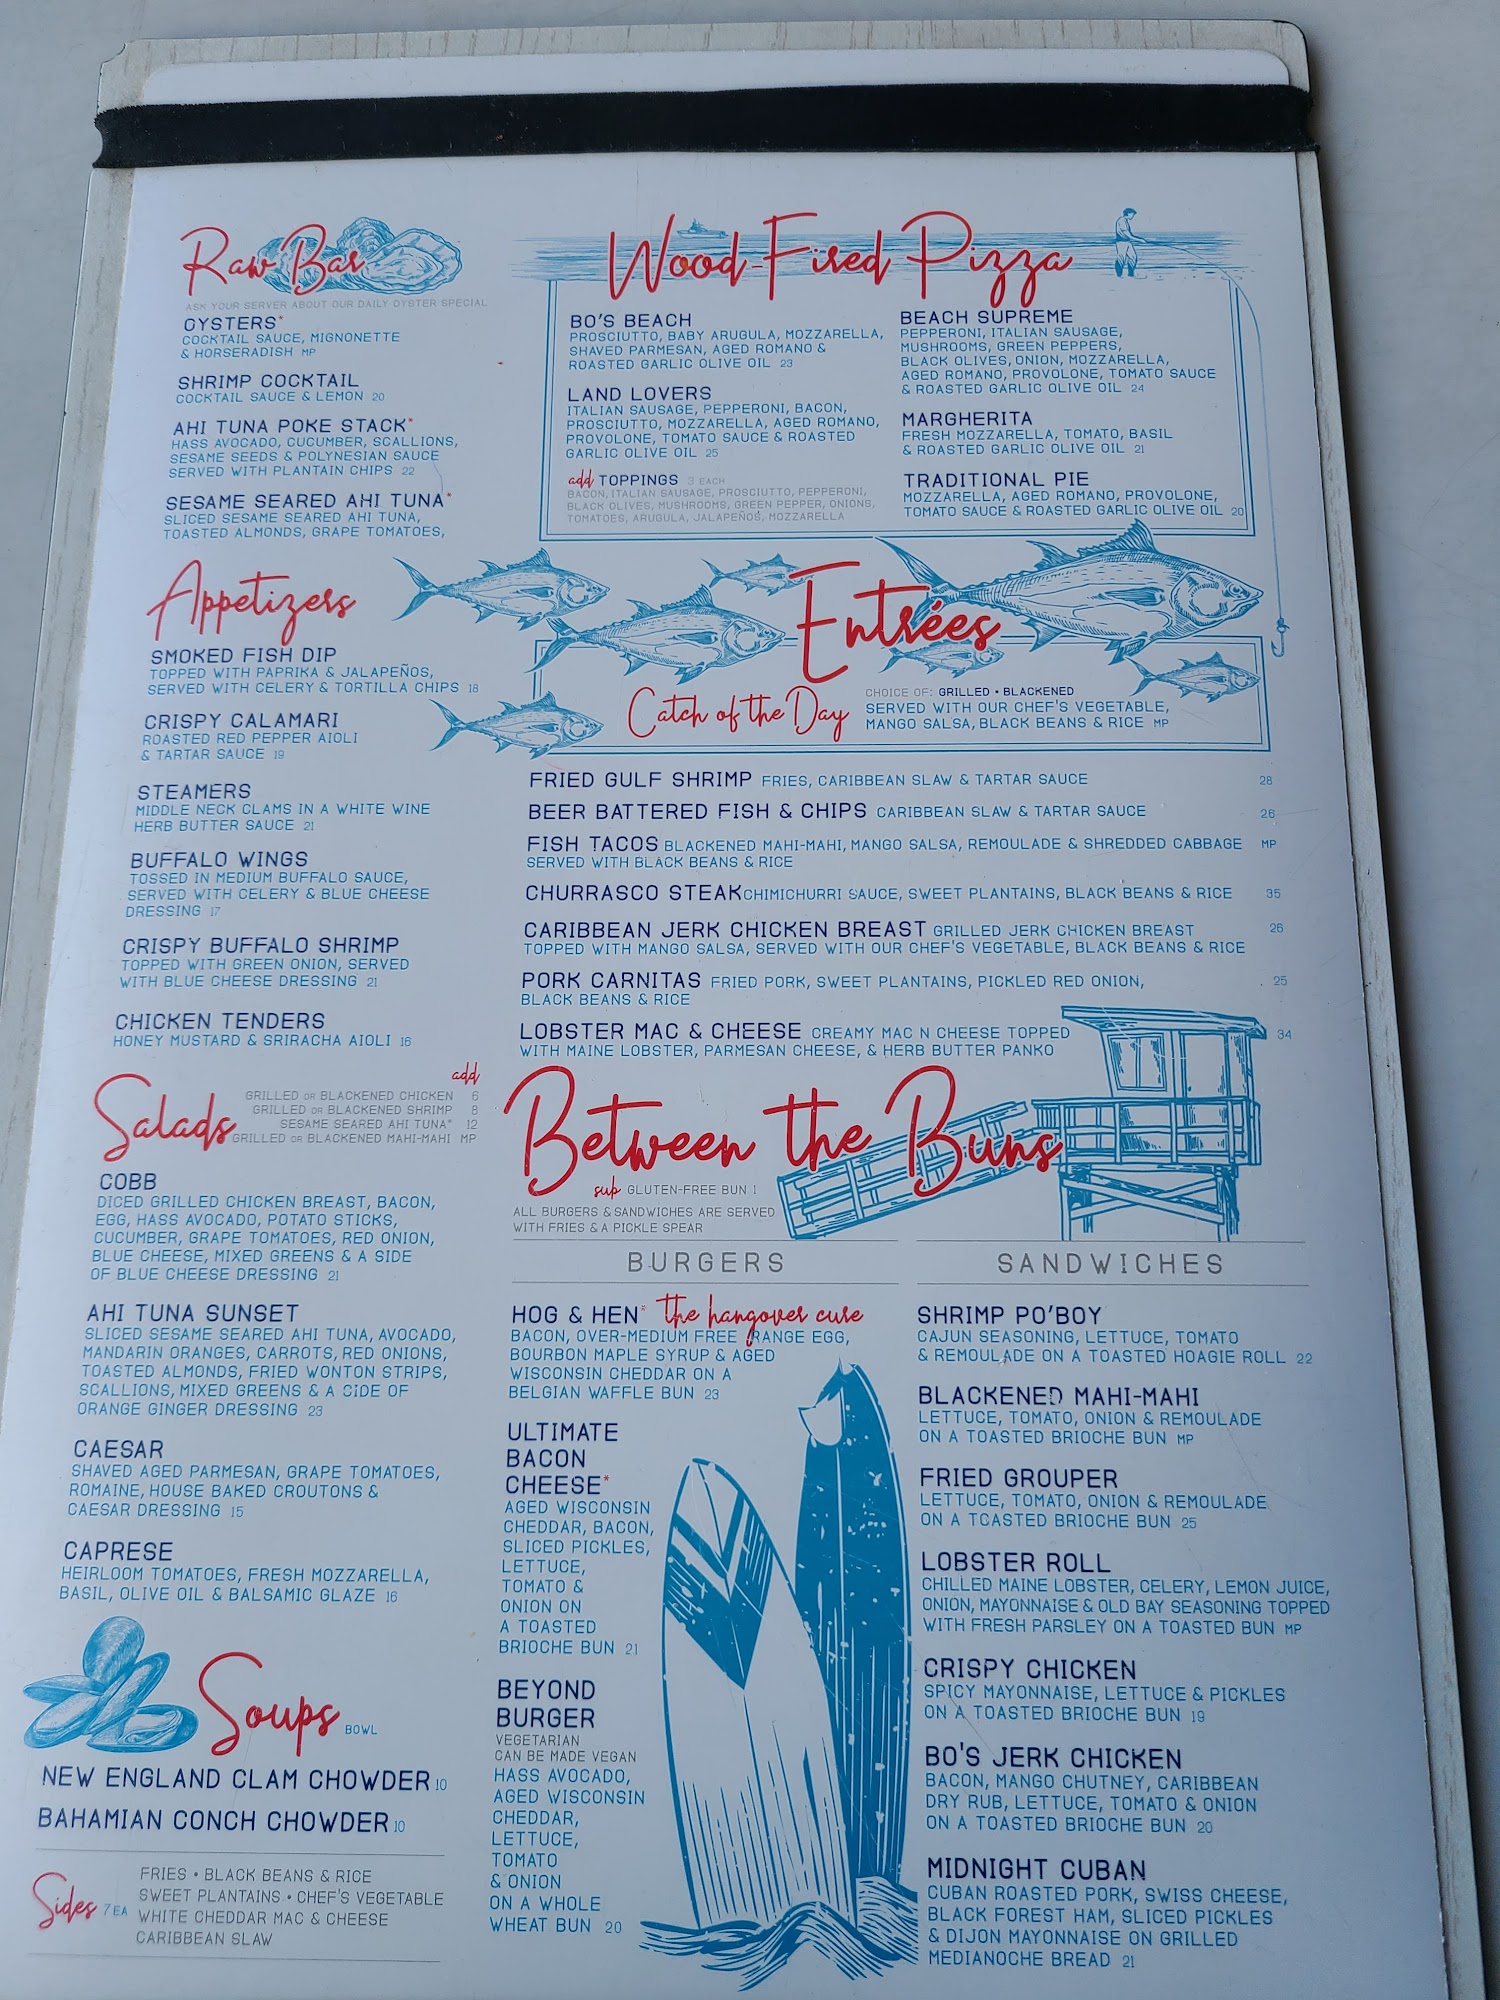 Raw Bar
ASK YOUR SERVER ABOUT OUR DAILY OYSTER SPECIAL
OYSTERS*
COCKTAIL SAUCE, MIGNONETTE
& HORSERADISH MP
SHRIMP COCKTAIL
COCKTAIL SAUCE & LEMON 20
AHI TUNA POKE STACK*
HASS AVOCADO, CUCUMBER, SCALLIONS,
SESAME SEEDS & POLYNESIAN SAUCE
SERVED WITH PLANTAIN CHIPS 22
SESAME SEARED AHI TUNA*
SLICED SESAME SEARED AHI TUNA,
TOASTED ALMONDS, GRAPE TOMATOES,
Appetizers
SMOKED FISH DIP
TOPPED WITH PAPRIKA & JALAPEÑOS,
SERVED WITH CELERY & TORTILLA CHIPS 18
CRISPY CALAMARI
ROASTED RED PEPPER AIOLI
& TARTAR SAUCE 19
STEAMERS
MIDDLE NECK CLAMS IN A WHITE WINE
HERB BUTTER SAUCE 21
BUFFALO WINGS
TOSSED IN MEDIUM BUFFALO SAUCE,
SERVED WITH CELERY & BLUE CHEESE
DRESSING 17
CRISPY BUFFALO SHRIMP
TOPPED WITH GREEN ONION, SERVED
WITH BLUE CHEESE DRESSING 21
CHICKEN TENDERS
HONEY MUSTARD & SRIRACHA AIOLI 16
Salads
add
GRILLED OR BLACKENED CHICKEN 6
GRILLED OR BLACKENED SHRIMP 8
SESAME SEARED AHI TUNA* 12
GRILLED OR BLACKENED MAHI-MAHI MP
COBB
DICED GRILLED CHICKEN BREAST, BACON,
EGG, HASS AVOCADO, POTATO STICKS,
CUCUMBER, GRAPE TOMATOES, RED ONION,
BLUE CHEESE, MIXED GREENS & A SIDE
OF BLUE CHEESE DRESSING 21
AHI TUNA SUNSET
SLICED SESAME SEARED AHI TUNA, AVOCADO,
MANDARIN ORANGES, CARROTS, RED ONIONS,
TOASTED ALMONDS, FRIED WONTON STRIPS,
SCALLIONS, MIXED GREENS & A SIDE OF
ORANGE GINGER DRESSING 23
CAESAR
SHAVED AGED PARMESAN, GRAPE TOMATOES,
ROMAINE, HOUSE BAKED CROUTONS &
CAESAR DRESSING 15
CAPRESE
HEIRLOOM TOMATOES, FRESH MOZZARELLA,
BASIL, OLIVE OIL & BALSAMIC GLAZE 16
Soups BOWL
NEW ENGLAND CLAM CHOWDER 10
BAHAMIAN CONCH CHOWDER 10
Sides 7 EA
FRIES • BLACK BEANS & RICE
SWEET PLANTAINS • CHEF'S VEGETABLE
WHITE CHEDDAR MAC & CHEESE
CARIBBEAN SLAW
Wood-Fired Pizza
BO'S BEACH
PROSCIUTTO, BABY ARUGULA, MOZZARELLA,
SHAVED PARMESAN, AGED ROMANO &
ROASTED GARLIC OLIVE OIL 23
LAND LOVERS
ITALIAN SAUSAGE, PEPPERONI, BACON,
PROSCIUTTO, MOZZARELLA, AGED ROMANO,
PROVOLONE, TOMATO SAUCE & ROASTED
GARLIC OLIVE OIL 25
add TOPPINGS 3 EACH
BACON, ITALIAN SAUSAGE, PROSCIUTTO, PEPPERONI,
BLACK OLIVES, MUSHROOMS, GREEN PEPPER, ONIONS,
TOMATOES, ARUGULA, JALAPEÑOS, MOZZARELLA
BEACH SUPREME
PEPPERONI, ITALIAN SAUSAGE,
MUSHROOMS, GREEN PEPPERS,
BLACK OLIVES, ONION, MOZZARELLA,
AGED ROMANO, PROVOLONE, TOMATO SAUCE
& ROASTED GARLIC OLIVE OIL 24
MARGHERITA
FRESH MOZZARELLA, TOMATO, BASIL
& ROASTED GARLIC OLIVE OIL 21
TRADITIONAL PIE
MOZZARELLA, AGED ROMANO, PROVOLONE,
TOMATO SAUCE & ROASTED GARLIC OLIVE OIL 20
Entrées
Catch of the Day
CHOICE OF: GRILLED • BLACKENED
SERVED WITH OUR CHEF'S VEGETABLE,
MANGO SALSA, BLACK BEANS & RICE MP
FRIED GULF SHRIMP FRIES, CARIBBEAN SLAW & TARTAR SAUCE 28
BEER BATTERED FISH & CHIPS CARIBBEAN SLAW & TARTAR SAUCE 26
FISH TACOS BLACKENED MAHI-MAHI, MANGO SALSA, REMOULADE & SHREDDED CABBAGE MP
SERVED WITH BLACK BEANS & RICE
CHURRASCO STEAK CHIMICHURRI SAUCE, SWEET PLANTAINS, BLACK BEANS & RICE 35
CARIBBEAN JERK CHICKEN BREAST GRILLED JERK CHICKEN BREAST 26
TOPPED WITH MANGO SALSA, SERVED WITH OUR CHEF'S VEGETABLE, BLACK BEANS & RICE
PORK CARNITAS FRIED PORK, SWEET PLANTAINS, PICKLED RED ONION, 25
BLACK BEANS & RICE
LOBSTER MAC & CHEESE CREAMY MAC N CHEESE TOPPED 34
WITH MAINE LOBSTER, PARMESAN CHEESE, & HERB BUTTER PANKO
Between the Buns
sub GLUTEN-FREE BUN 1
ALL BURGERS & SANDWICHES ARE SERVED
WITH FRIES & A PICKLE SPEAR
BURGERS
HOG & HEN* the hangover cure
BACON, OVER-MEDIUM FREE RANGE EGG,
BOURBON MAPLE SYRUP & AGED
WISCONSIN CHEDDAR ON A
BELGIAN WAFFLE BUN 23
ULTIMATE
BACON
CHEESE*
AGED WISCONSIN
CHEDDAR, BACON,
SLICED PICKLES,
LETTUCE,
TOMATO &
ONION ON
A TOASTED
BRIOCHE BUN 21
BEYOND
BURGER
VEGETARIAN
CAN BE MADE VEGAN
HASS AVOCADO,
AGED WISCONSIN
CHEDDAR,
LETTUCE,
TOMATO
& ONION
ON A WHOLE
WHEAT BUN 20
SANDWICHES
SHRIMP PO'BOY
CAJUN SEASONING, LETTUCE, TOMATO
& REMOULADE ON A TOASTED HOAGIE ROLL 22
BLACKENED MAHI-MAHI
LETTUCE, TOMATO, ONION & REMOULADE
ON A TOASTED BRIOCHE BUN MP
FRIED GROUPER
LETTUCE, TOMATO, ONION & REMOULADE
ON A TOASTED BRIOCHE BUN 25
LOBSTER ROLL
CHILLED MAINE LOBSTER, CELERY, LEMON JUICE,
ONION, MAYONNAISE & OLD BAY SEASONING TOPPED
WITH FRESH PARSLEY ON A TOASTED BUN MP
CRISPY CHICKEN
SPICY MAYONNAISE, LETTUCE & PICKLES
ON A TOASTED BRIOCHE BUN 19
BO'S JERK CHICKEN
BACON, MANGO CHUTNEY, CARIBBEAN
DRY RUB, LETTUCE, TOMATO & ONION
ON A TOASTED BRIOCHE BUN 20
MIDNIGHT CUBAN
CUBAN ROASTED PORK, SWISS CHEESE,
BLACK FOREST HAM, SLICED PICKLES
& DIJON MAYONNAISE ON GRILLED
MEDIANOCHE BREAD 21